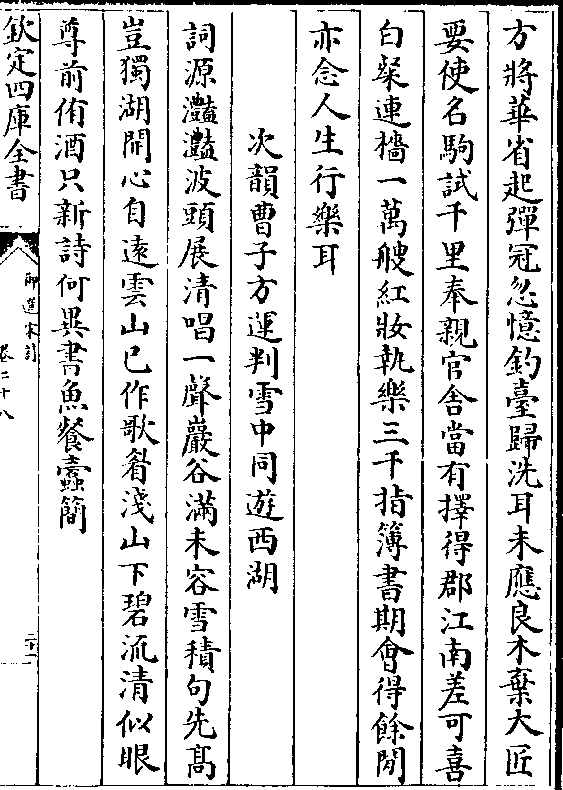 方將華省起彈冠忽憶釣臺歸洗耳未應良木棄大匠
要使名駒試千里奉親官舍當有擇得郡江南差可喜
白粲連檣一萬艘紅妝執樂三千指簿書期會得餘閒
亦念人生行樂耳
次韻曹子方運判雪中同遊西湖
詞源灩灩波頭展清唱一聲巖谷滿未容雪積句先髙
豈獨湖開心自逺雲山已作歌眉淺山下碧流清似眼
尊前侑酒只新詩何異書魚餐蠹簡
欽定四庫全書
御選宋詩
卷二十八
二十二